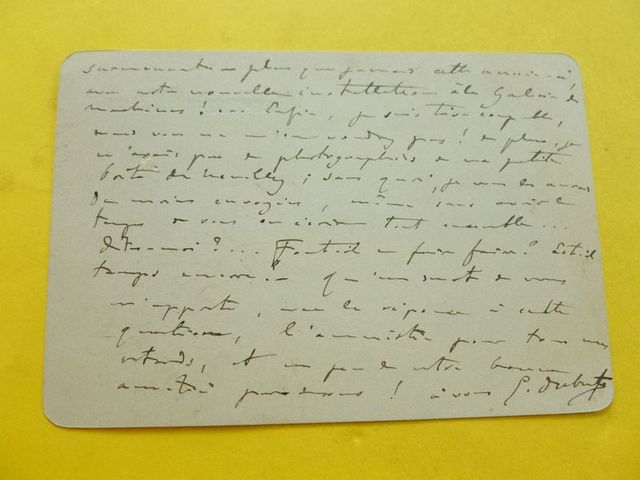 surmenante – plus que jamais cette année-ci,
avec notre nouvelle installation à la Galerie des
machines ! ... Enfin, je suis très coupable,
mais vous ne m'en voudrez pas ! de plus, je
n'avais pas de photographies de ma petite
porte de Neuilly ; sans quoi, je vous les aurais
du moins envoyées, même sans avoir le
temps de vous en écrire tout ensemble ...
Dites-moi ? ... Faut-il en faire faire ? Est-il
temps encore ? – Qu'un mot de vous
m'apporte, avec la réponse à cette
question, l'amnistie pour tous mes
retards, et un peu de votre bonne
amitié par dessus ! à vous G. Dubufe